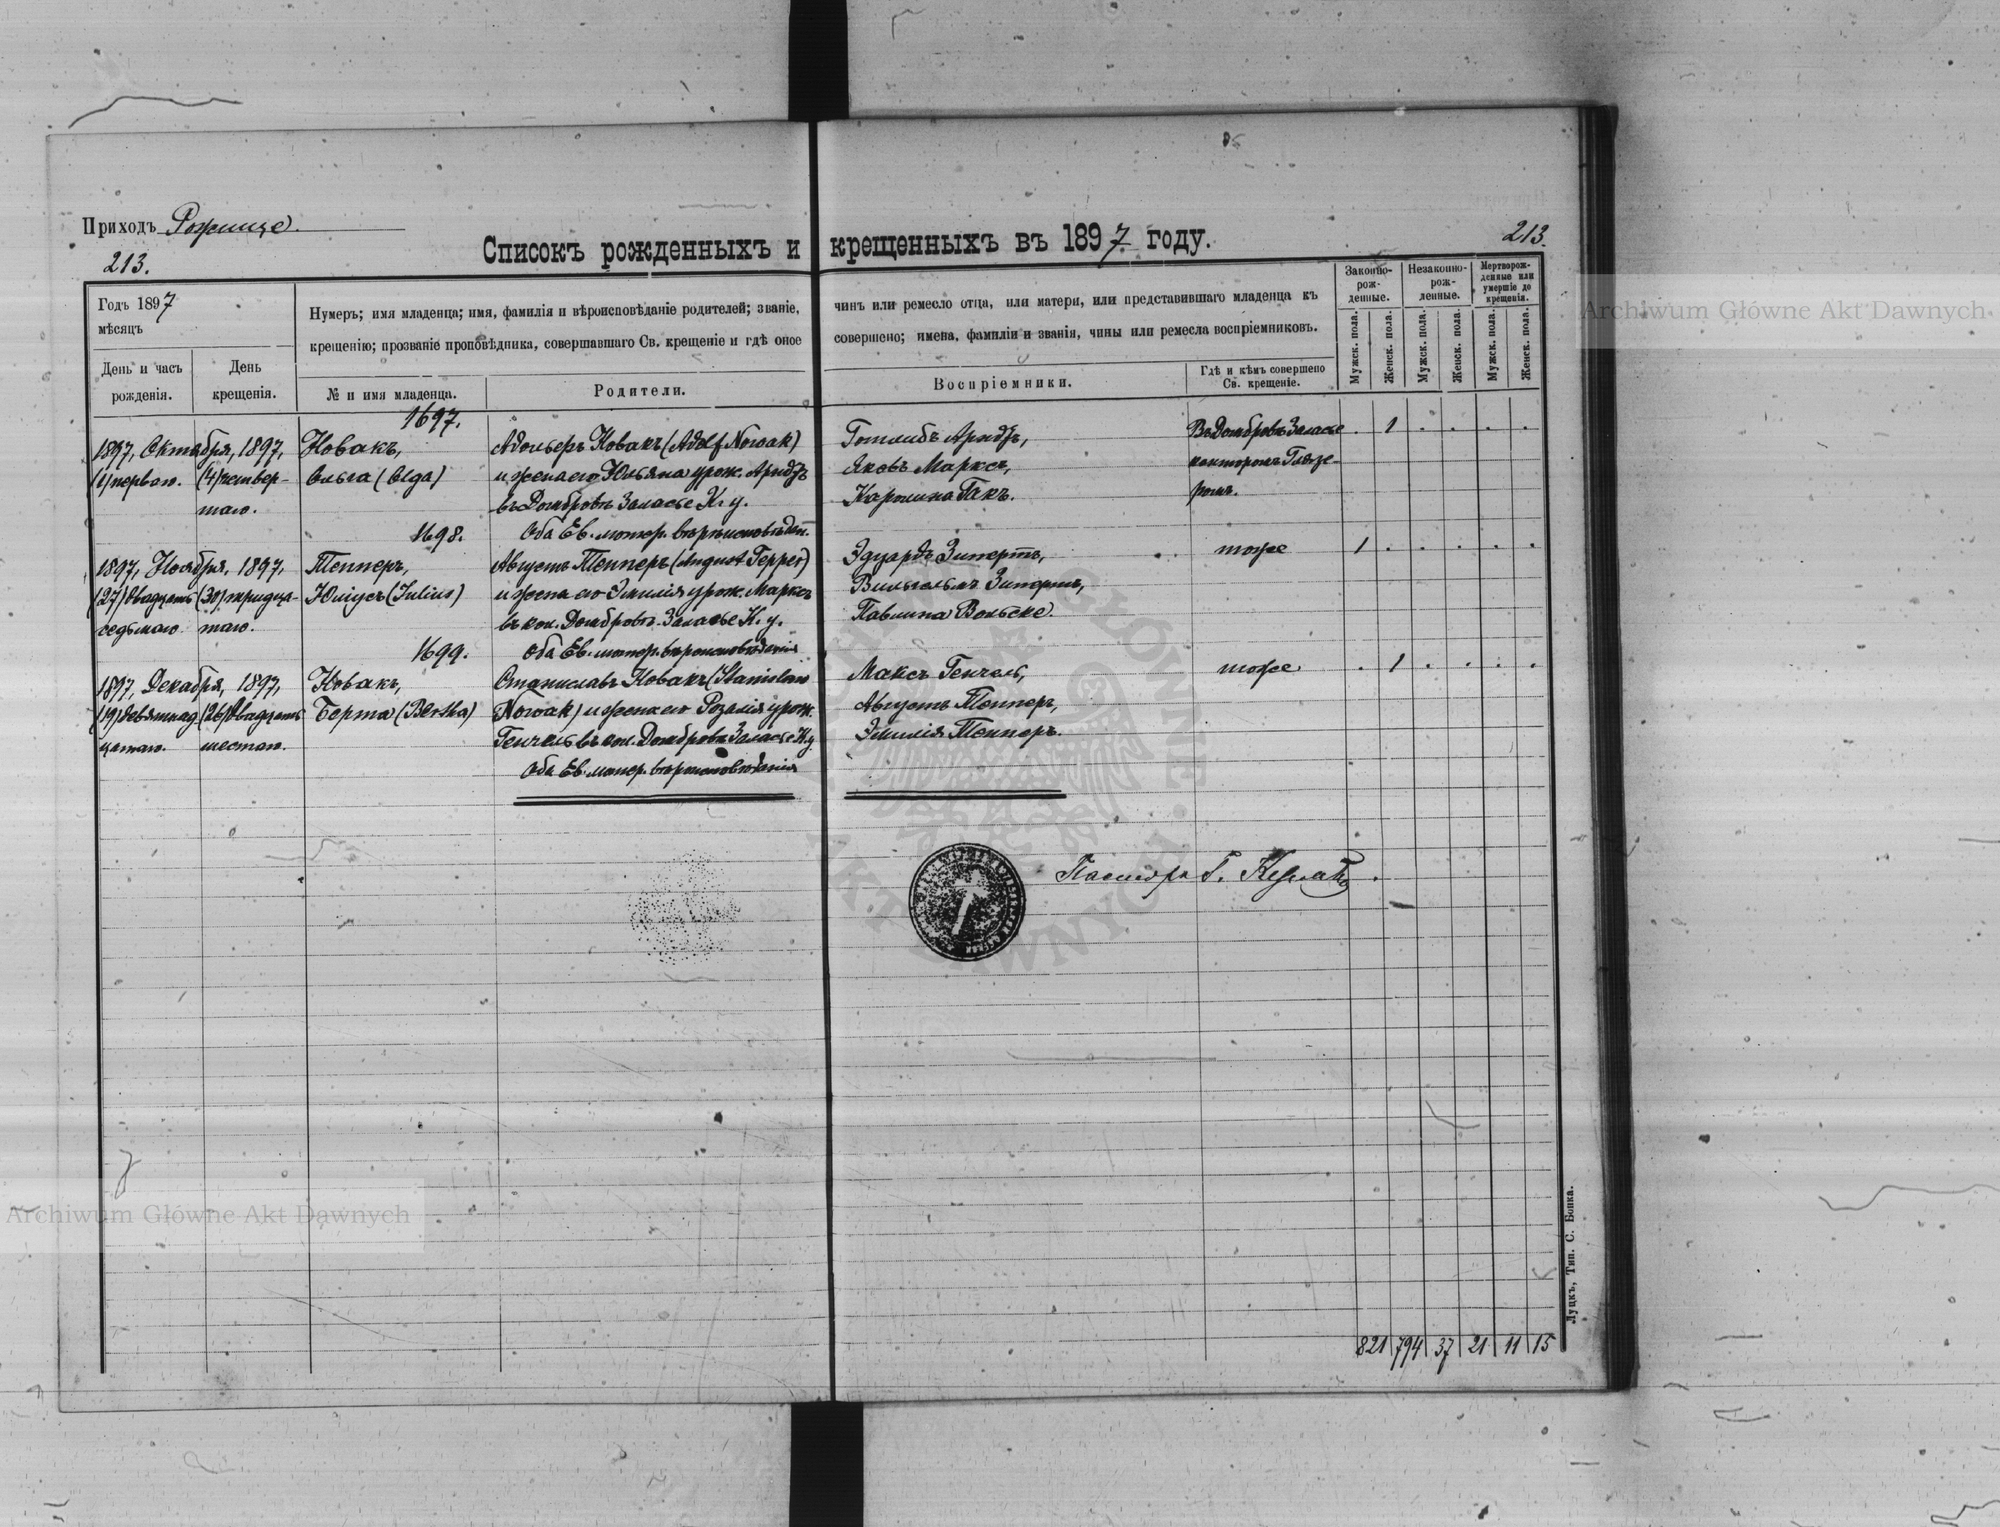 Приходъ Рожище.
213.
213.
Списокъ рожденныхъ и крещенныхъ въ 1897 году.
Годъ 1897
мѣсяцъ
День и часъ
рожденія.
День
крещенія.
Нумеръ; имя младенца; имя, фамилія и вѣроисповѣданіе родителей; званіе, чинъ или ремесло отца, или матери, или представившаго младенца къ
крещенію; прозваніе проповѣдника, совершавшаго Св. крещеніе и гдѣ оное совершено; имена, фамиліи и званія, чины или ремесла воспріемниковъ.
№ и имя младенца.
Родители.
Воспріемники.
Гдѣ и кѣмъ совершено
Св. крещеніе.
Законно-
рож-
денные.
Незаконно-
рож-
денные.
Мертворож-
денные или
умершіе до
крещенія.
Мужск. пола.
Женск. пола.
Мужск. пола.
Женск. пола.
Мужск. пола.
Женск. пола.
1697.
1897, Октября, 1897,
(1) первого. (4) четвер-
таго.
Новакъ,
Ольга (Olga)
Адольфъ Новакъ (Adolf Nowak)
и жена его Юльяна урож. Арндтъ
въ Домбровъ Заласье К. у.
Оба Ев. лютер. вѣроисповѣдан.
Готлибъ Арндтъ,
Яковъ Марксъ,
Каролина Гакъ.
Въ Домбровъ Заласье
канторомъ
. 1 . . . .
1698.
1897, Ноября, 1897,
(27) двадцать (30) тридца-
седьмого таго.
Тепперъ,
Юліусъ (Julius)
Августъ Тепперъ (August Tepper)
и жена его Эмилія урож. Марксъ
въ кол. Домбровъ-Заласье К. у.
Оба Ев. лютер. вѣроисповѣданія
Эдуардъ Зипертъ,
Вильгельмъ Зипертъ,
Павлина Вольске.
тоже
1 . . . . .
1699.
1897, Декабря, 1897,
(19) девятнад (26) двадцать
цатаго. шестого.
Новакъ,
Берта (Bertha)
Станиславъ Новакъ (Stanislaus
Nowak) и жена его Розалія урож.
Генчель въ кол. Домбровъ Заласье К. у.
Оба Ев. лютер. вѣроисповѣданія
Максъ Генчель,
Августъ Тепперъ,
Эмилія Тепперъ.
тоже
. 1 . . . .
Пасторъ Г.
821 794 37 21 11 15
Луцкъ, Тип. С. Бонка.
Archiwum Główne Akt Dawnych
Archiwum Główne Akt Dawnych